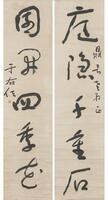 庭隱千重石
園開四季花
于右任